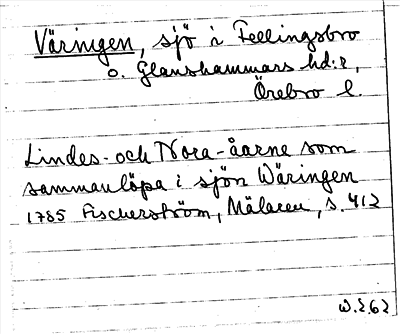 Väringen, sjö i Fellingsbro
o. Glanshammars hd:r,
Örebro l.
Lindes- och Nora-åarne som
sammanlöpa i sjön Wäringen
1785 Fischerström, Mälaren, s. 412
W.E.62